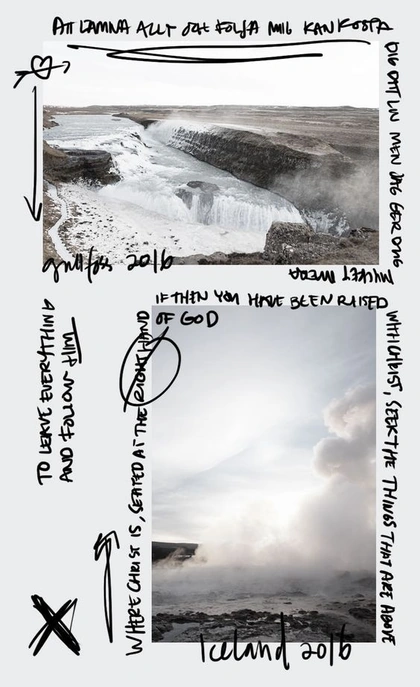 ATT LÄMNA ALLT OCH FÖLJA MIG KAN KOSTA
DIG DITT LIV MEN JAG GER DIG
MYCKET MERA
gullfoss 2016
IF THEN YOU HAVE BEEN RAISED
WITH CHRIST, SEEK THE THINGS THAT ARE ABOVE
WHERE CHRIST IS, SEATED AT THE RIGHT HAND
OF GOD
TO LEAVE EVERYTHING
AND FOLLOW HIM
Iceland 2016